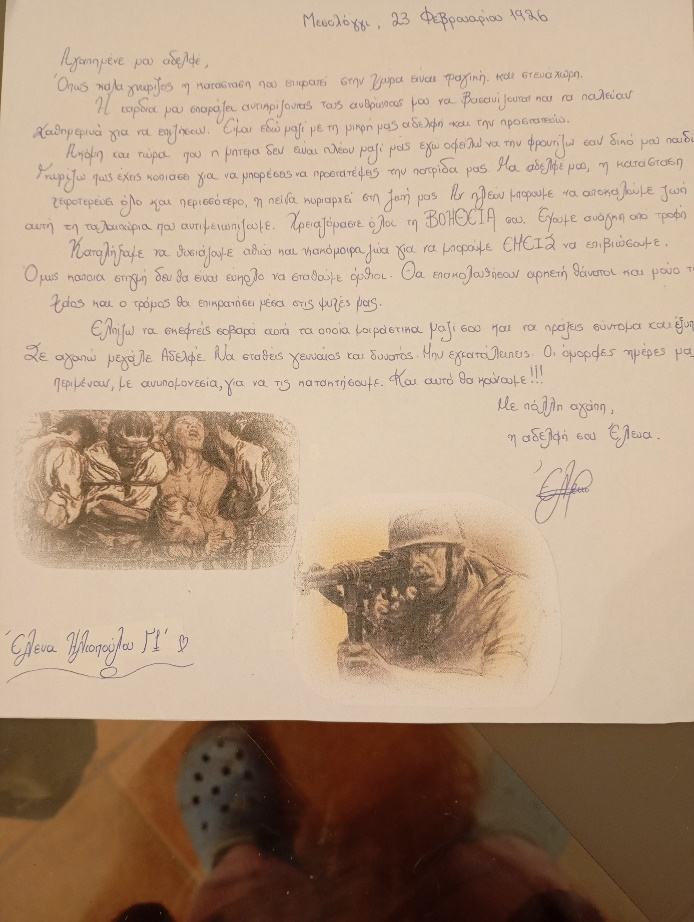 Μεσολόγγι, 23 Φεβρουαρίου 1926
Αγαπημένε μου αδελφέ,
Όπως καλά γνωρίζεις η κατάσταση που επικρατεί στην χώρα είναι τραγική και στενάχωρη.
Η καρδιά μου σπαράζει αντικρίζοντας τους ανθρώπους μου να βασανίζονται και να παλεύουν
καθημερινά για να επιζήσουν. Είμαι εδώ μαζί με τη μικρή μας αδελφή και την προστατεύω.
Ακόμη και τώρα που η μητέρα δεν είναι πλέον μαζί μας εγώ οφείλω να την φροντίζω σαν δικό μου παιδί
Γνωρίζω πως έχεις κοπιάσει για να μπορέσεις να προστατέψεις την πατρίδα μας. Μα αδελφέ μου, η κατάσταση
χειροτερεύει όλο και περισσότερο, η πείνα κυριαρχεί στη ζωή μας. Αν πλέον μπορούμε να αποκαλούμε ζωή
αυτή τη ταλαιπωρία που αντιμετωπίζουμε. Χρειαζόμαστε όλοι τη ΒΟΗΘΕΙΑ σου. Έχουμε ανάγκη από τροφή
Καταλήξαμε να θυσιάζουμε αθώα και κακόμοιρα ζώα για να μπορούμε ΕΜΕΙΣ να επιβιώσουμε.
Όμως κάποια στιγμή δεν θα είναι εύκολο να σταθούμε όρθιοι. Θα επακολουθήσουν αρκετοί θάνατοι και μόνο το
χάος και ο τρόμος θα επικρατήσει μέσα στις ψυχές μας.
Ελπίζω να σκεφτείς σοβαρά αυτά τα οποία μοιράστηκα μαζί σου και να πράξεις σύντομα και έξυπ
Σε αγαπώ μεγάλε Αδελφέ. Να σταθείς γενναίος και δυνατός. Μην εγκαταλείπεις. Οι όμορφες ημέρες μα
περιμένουν, με ανυπομονεσία, για να τις κατακτήσουμε. Και αυτό θα κάνουμε!!!
Με πολλή αγάπη,
η αδελφή σου Έλενα.
Έλενα Ηλιοπούλου Γ1'